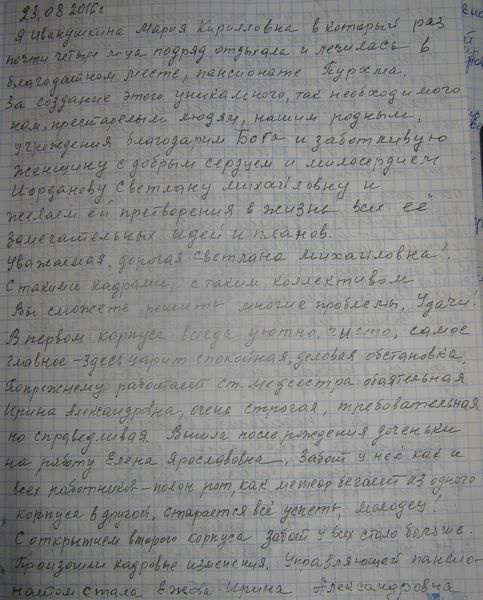 23.08.2016г
Я Иванушкина Мария Кирилловна в который раз
почти четыре м-ца подряд отдыхала и лечилась в
благодатном месте, пансионате Пурхма.
За создание этого уникального, так необходимого
нам, престарелым людям, нашим родным,
учреждения благодарим Бога и заботливую
женщину с добрым сердцем и милосердием
Иорданову Светлану Михайловну и
желаем ей претворения в жизнь всех её
замечательных идей и планов.
Уважаемая, дорогая Светлана Михайловна!
С такими кадрами, с таким коллективом
Вы сможете решить многие проблемы. Удачи!
В первом корпусе всегда уютно, чисто, самое
главное - здесь царит спокойная, деловая обстановка.
Попрежнему работает ст. медсестра обаятельная
Ирина Александровна, очень строгая, требовательная
но справедливая. Вышла после рождения доченьки
на работу Елена Ярославовна. Забот у неё как и
всех работников - полон рот, как метеор бегает из одного
корпуса в другой, старается всё успеть, молодец!
С открытием второго корпуса забот у всех стало больше.
Произошли кадровые изменения. Управляющей пансио-
натом стала Ежова Ирина Александровна